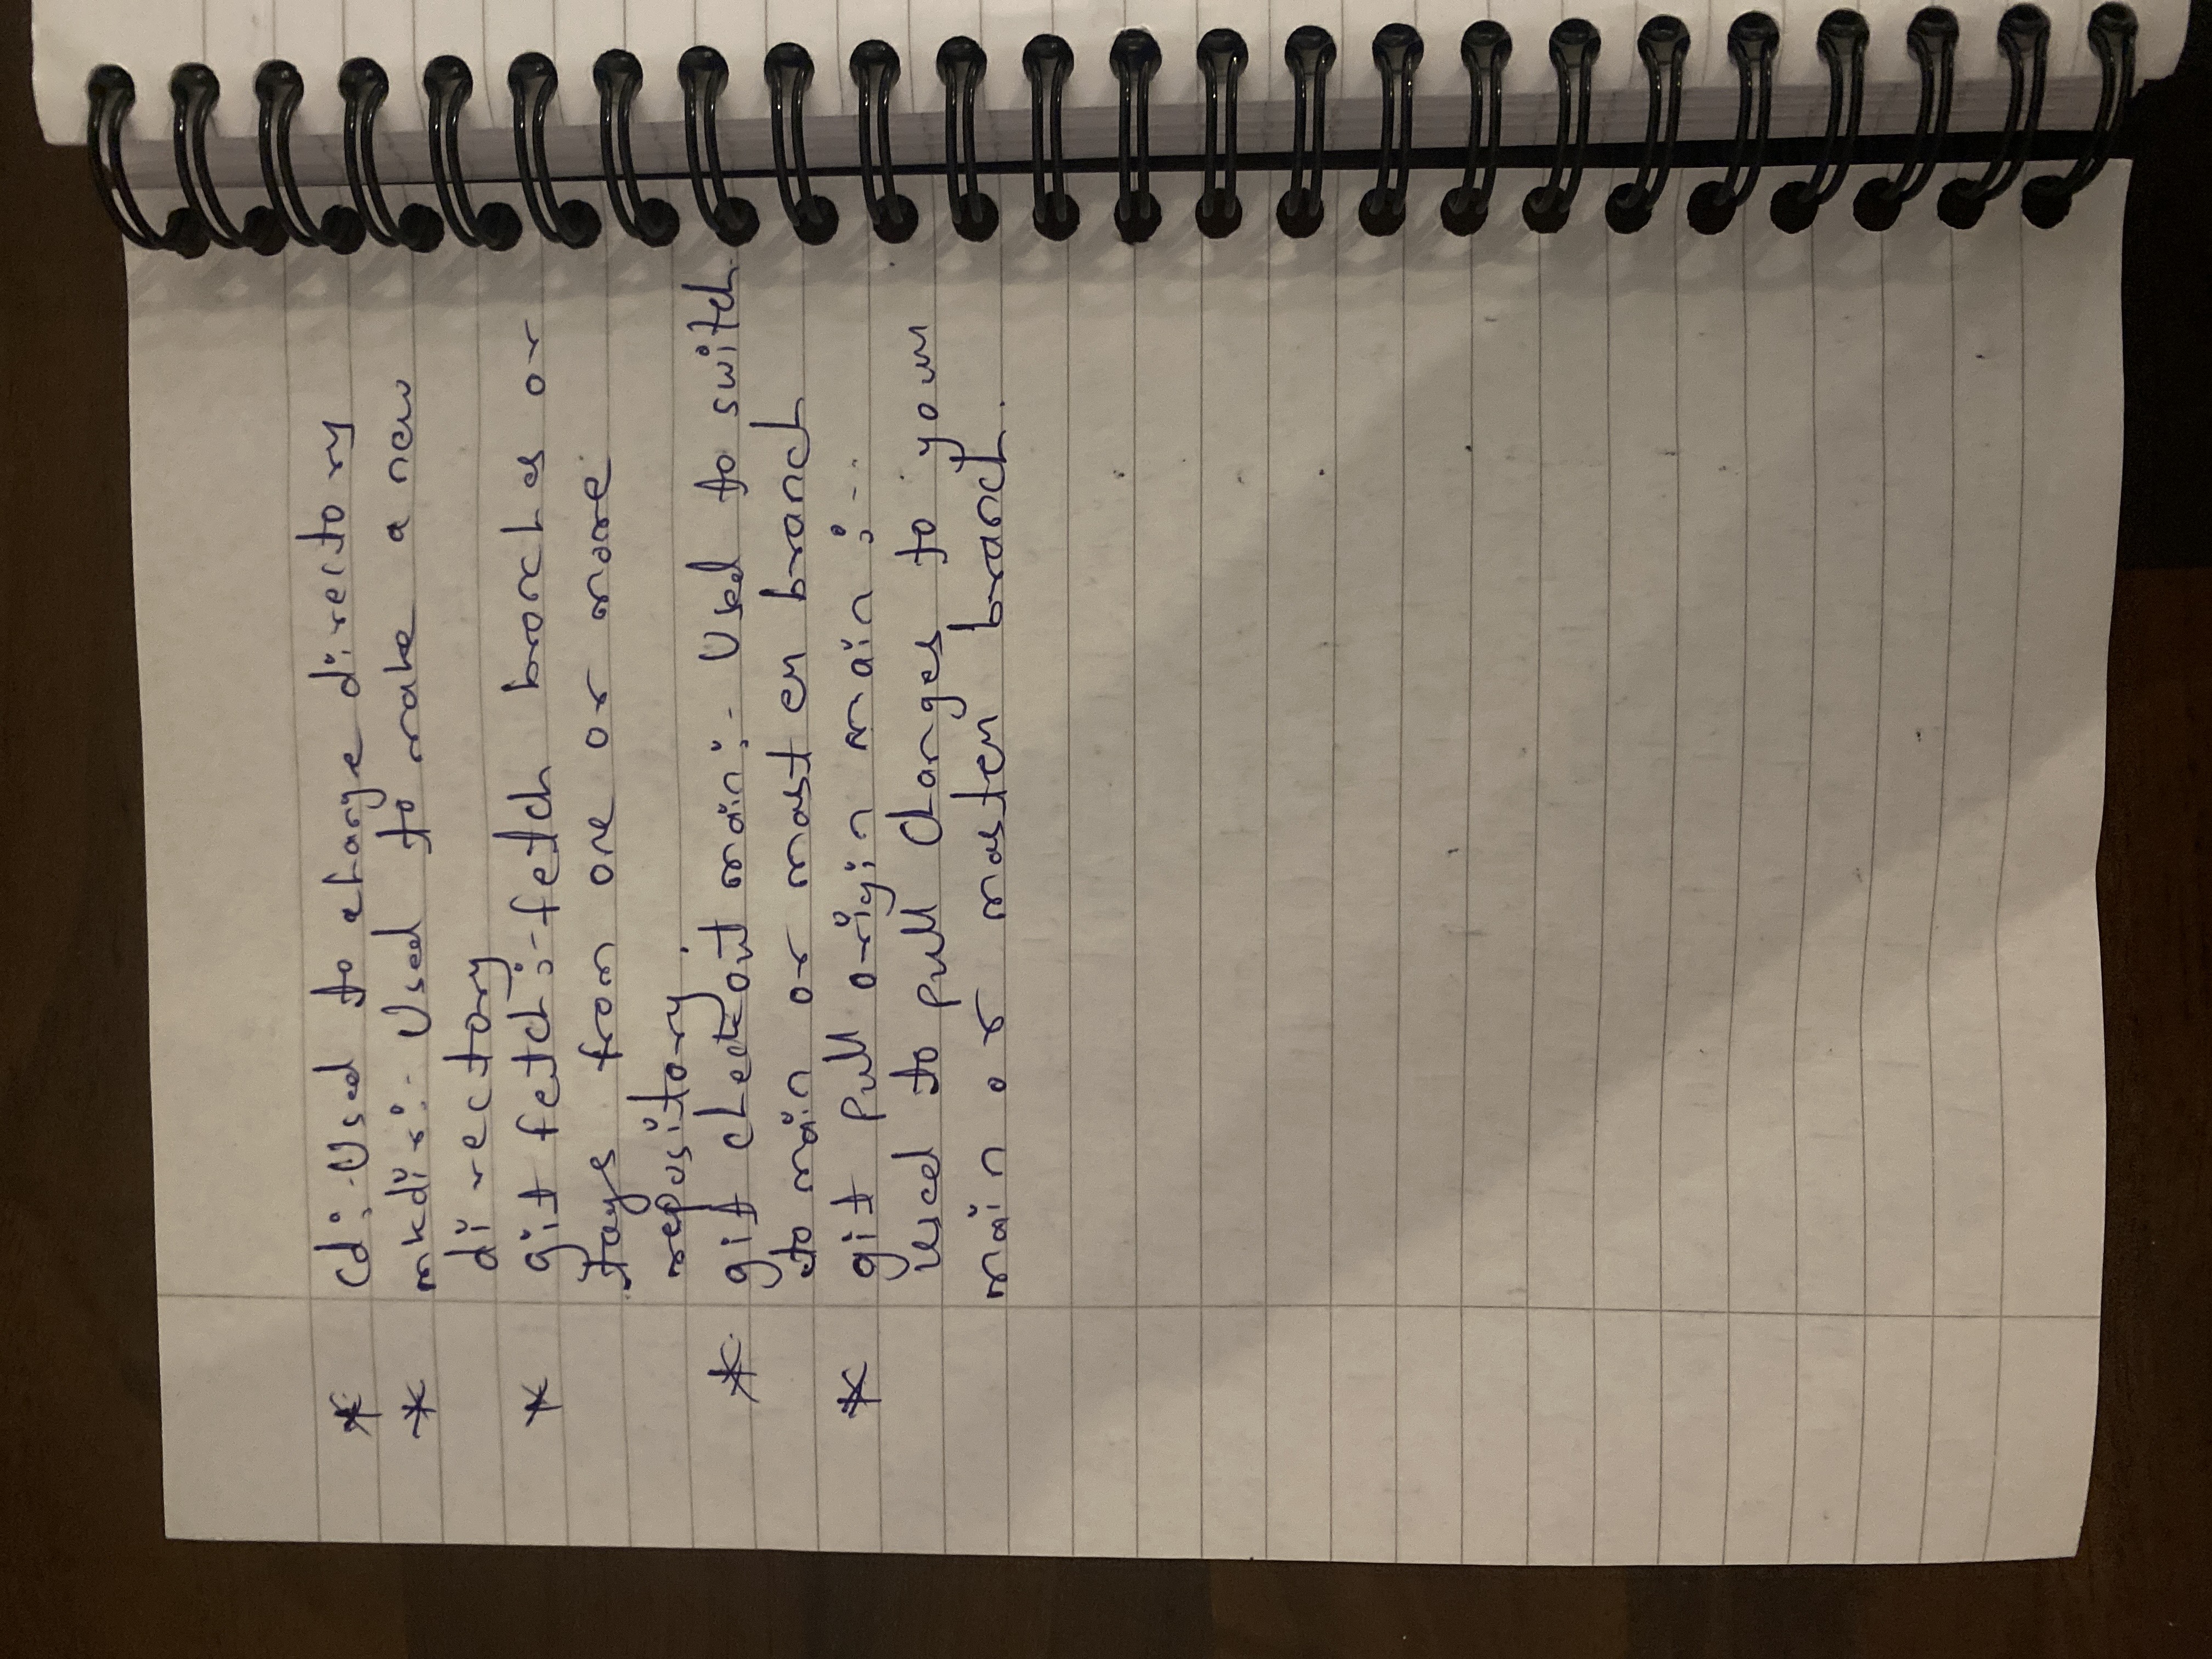 * cd:- Used to change directory
* mkdir:- Used to make a new
directory
* git fetch:- fetch branches or
tags from one or more
repository.
* git checkout main:- Used to switch
to main or master branch
* git pull origin main:-
used to pull changes to your
main or master branch.